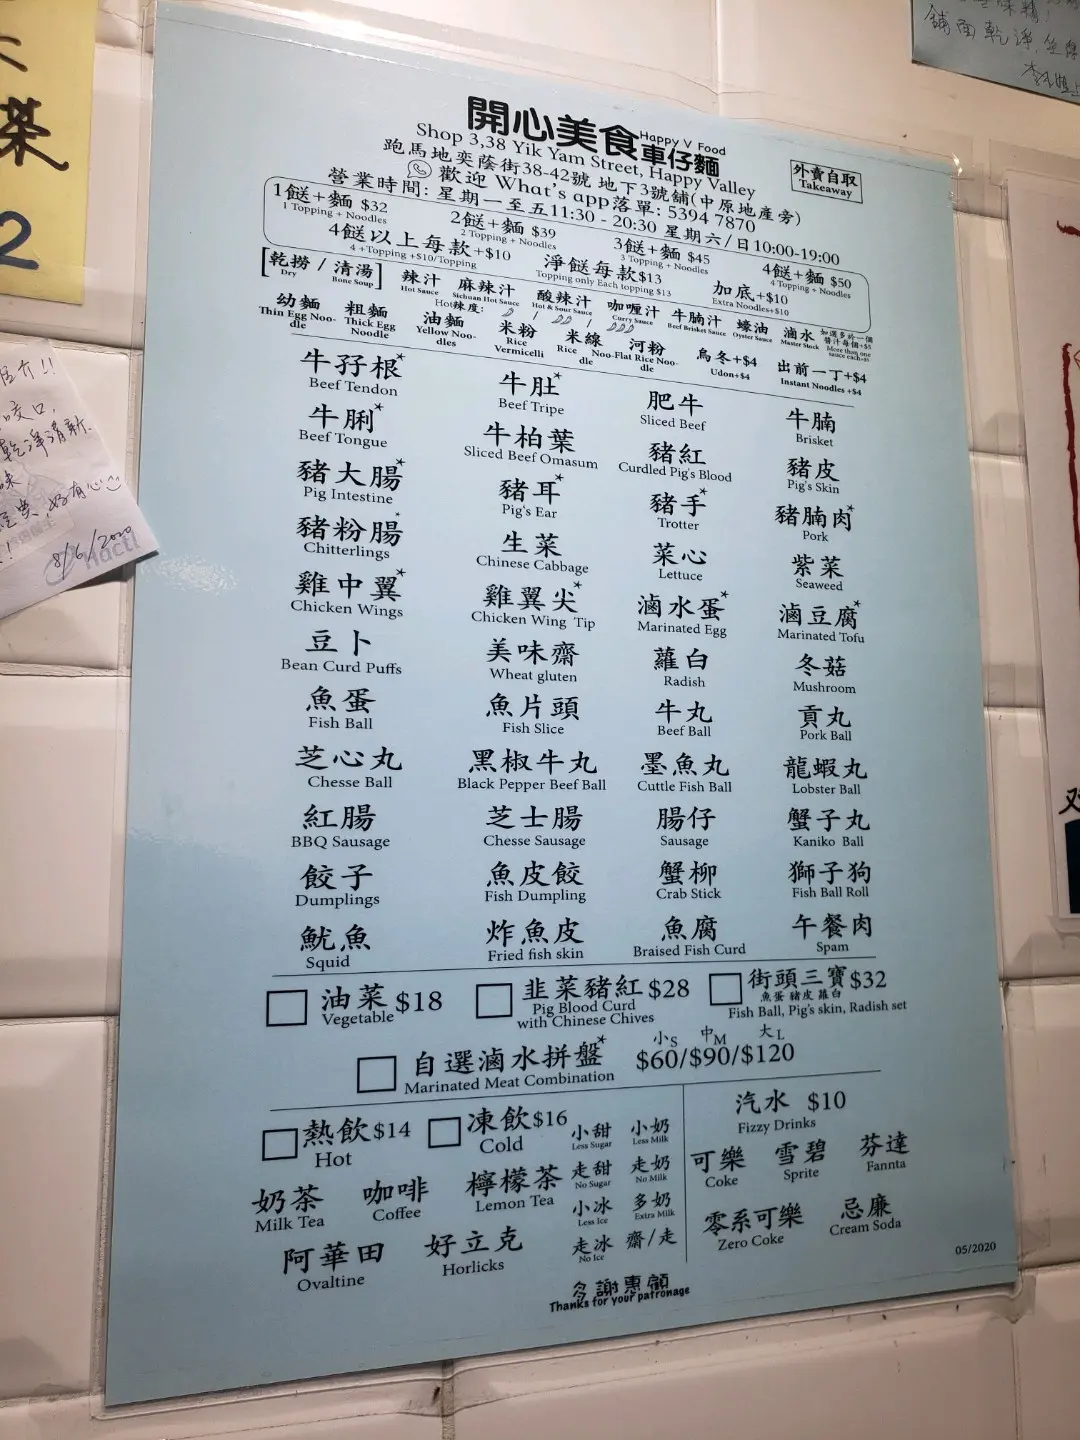 開心美食車仔麵
Happy V Food
Shop 3,38 Yik Yam Street, Happy Valley
跑馬地奕蔭街38-42號 地下3號舖(中原地產旁)
歡迎 What's app落單: 5394 7870
營業時間: 星期一至五11:30 - 20:30 星期六/日10:00-19:00
外賣自取
Takeaway
1餸+麵 $32 2餸+麵 $39 3餸+麵 $45 4餸+麵 $50
1 Topping + Noodles 2 Topping + Noodles 3 Topping + Noodles 4 Topping + Noodles
4餸以上每款+$10 淨餸每款$13 加底+$10
4 +Topping +$10/Topping Topping only Each topping $13 Extra Noodles+$10
[乾撈 / 清湯] 辣汁 麻辣汁 酸辣汁 咖喱汁 牛腩汁 蠔油 滷水 如選多於一個醬汁每個+$5
Dry Bone Soup Hot Sauce Sichuan Hot Sauce Hot & Sour Sauce Curry Sauce Beef Brisket Sauce Oyster Sauce Master Stock More than one sauce each+$5
Hot辣度: / /
幼麵 粗麵 油麵 米粉 米線 河粉 烏冬+$4 出前一丁+$4
Thin Egg Noo-dle Thick Egg Noodle Yellow Noo-dles Rice Vermicelli Rice Noo-dle Flat Rice Noo-dle Udon+$4 Instant Noodles +$4
牛孖根* 牛肚* 肥牛 牛腩
Beef Tendon Beef Tripe Sliced Beef Brisket
牛脷* 牛柏葉 豬紅 豬皮
Beef Tongue Sliced Beef Omasum Curdled Pig's Blood Pig's Skin
豬大腸* 豬耳* 豬手* 豬腩肉*
Pig Intestine Pig's Ear Trotter Pork
豬粉腸* 生菜 菜心 紫菜
Chitterlings Chinese Cabbage Lettuce Seaweed
雞中翼* 雞翼尖* 滷水蛋* 滷豆腐*
Chicken Wings Chicken Wing Tip Marinated Egg Marinated Tofu
豆卜 美味齋 蘿白 冬菇
Bean Curd Puffs Wheat gluten Radish Mushroom
魚蛋 魚片頭 牛丸 貢丸
Fish Ball Fish Slice Beef Ball Pork Ball
芝心丸 黑椒牛丸 墨魚丸 龍蝦丸
Chesse Ball Black Pepper Beef Ball Cuttle Fish Ball Lobster Ball
紅腸 芝士腸 腸仔 蟹子丸
BBQ Sausage Chesse Sausage Sausage Kaniko Ball
餃子 魚皮餃 蟹柳 獅子狗
Dumplings Fish Dumpling Crab Stick Fish Ball Roll
魷魚 炸魚皮 魚腐 午餐肉
Squid Fried fish skin Braised Fish Curd Spam
油菜 $18 韭菜豬紅 $28 街頭三寶 $32
魚蛋 豬皮 蘿白
Vegetable Pig Blood Curd with Chinese Chives Fish Ball, Pig's skin, Radish set
小S 中M 大L
自選滷水拼盤* $60/$90/$120
Marinated Meat Combination
熱飲 $14 凍飲 $16 小甜 小奶
Hot Cold Less Sugar Less Milk
奶茶 咖啡 檸檬茶 走甜 走奶
Milk Tea Coffee Lemon Tea No Sugar No Milk
小冰 多奶
Less Ice Extra Milk
阿華田 好立克 走冰 齋/走
Ovaltine Horlicks No Ice
汽水 $10
Fizzy Drinks
可樂 雪碧 芬達
Coke Sprite Fannta
零系可樂 忌廉
Zero Coke Cream Soda
05/2020
多謝惠顧
Thanks for your patronage
茶
2
咬口,
乾淨清新.
味
好有心
8/6/2020
Hactl
舖面乾淨,